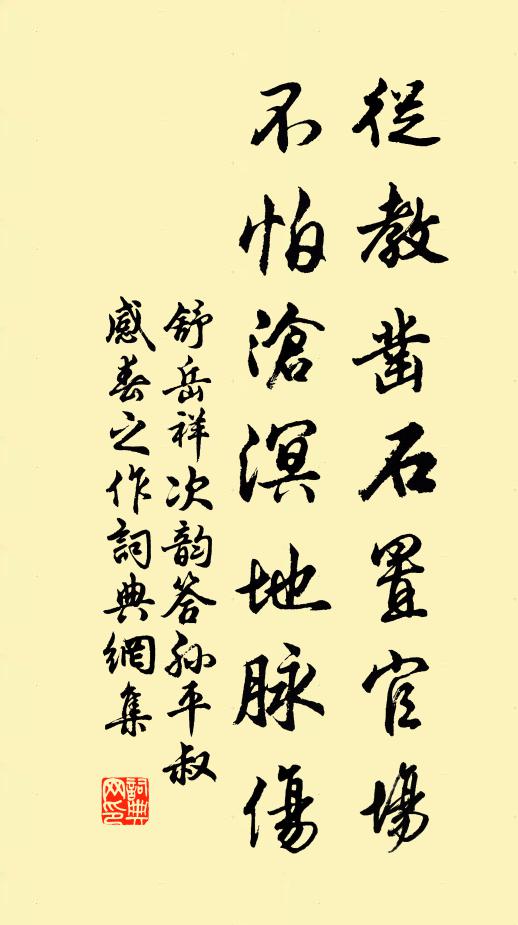 從教凿石置官場
不怕滄溟地脉傷
舒岳祥次韵答孫平叔
感春之作詞典網集
詞典
网印